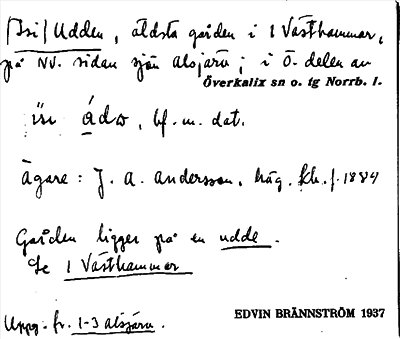 [Isi] Udden, äldsta gården i 1 Västhammar,
på NV. sidan sjön alsjärv; i Ö. delen av
Överkalix sn o. tg Norrb. l.
isi ádω, bf. m. dat.
Ägare: J. A. Andersson. häg. kh. f. 1884
Gården ligger på en udde.
Se 1 Västhammar
Uppg. fr. 1-3 alsjärv.
EDVIN BRÄNNSTRÖM 1937